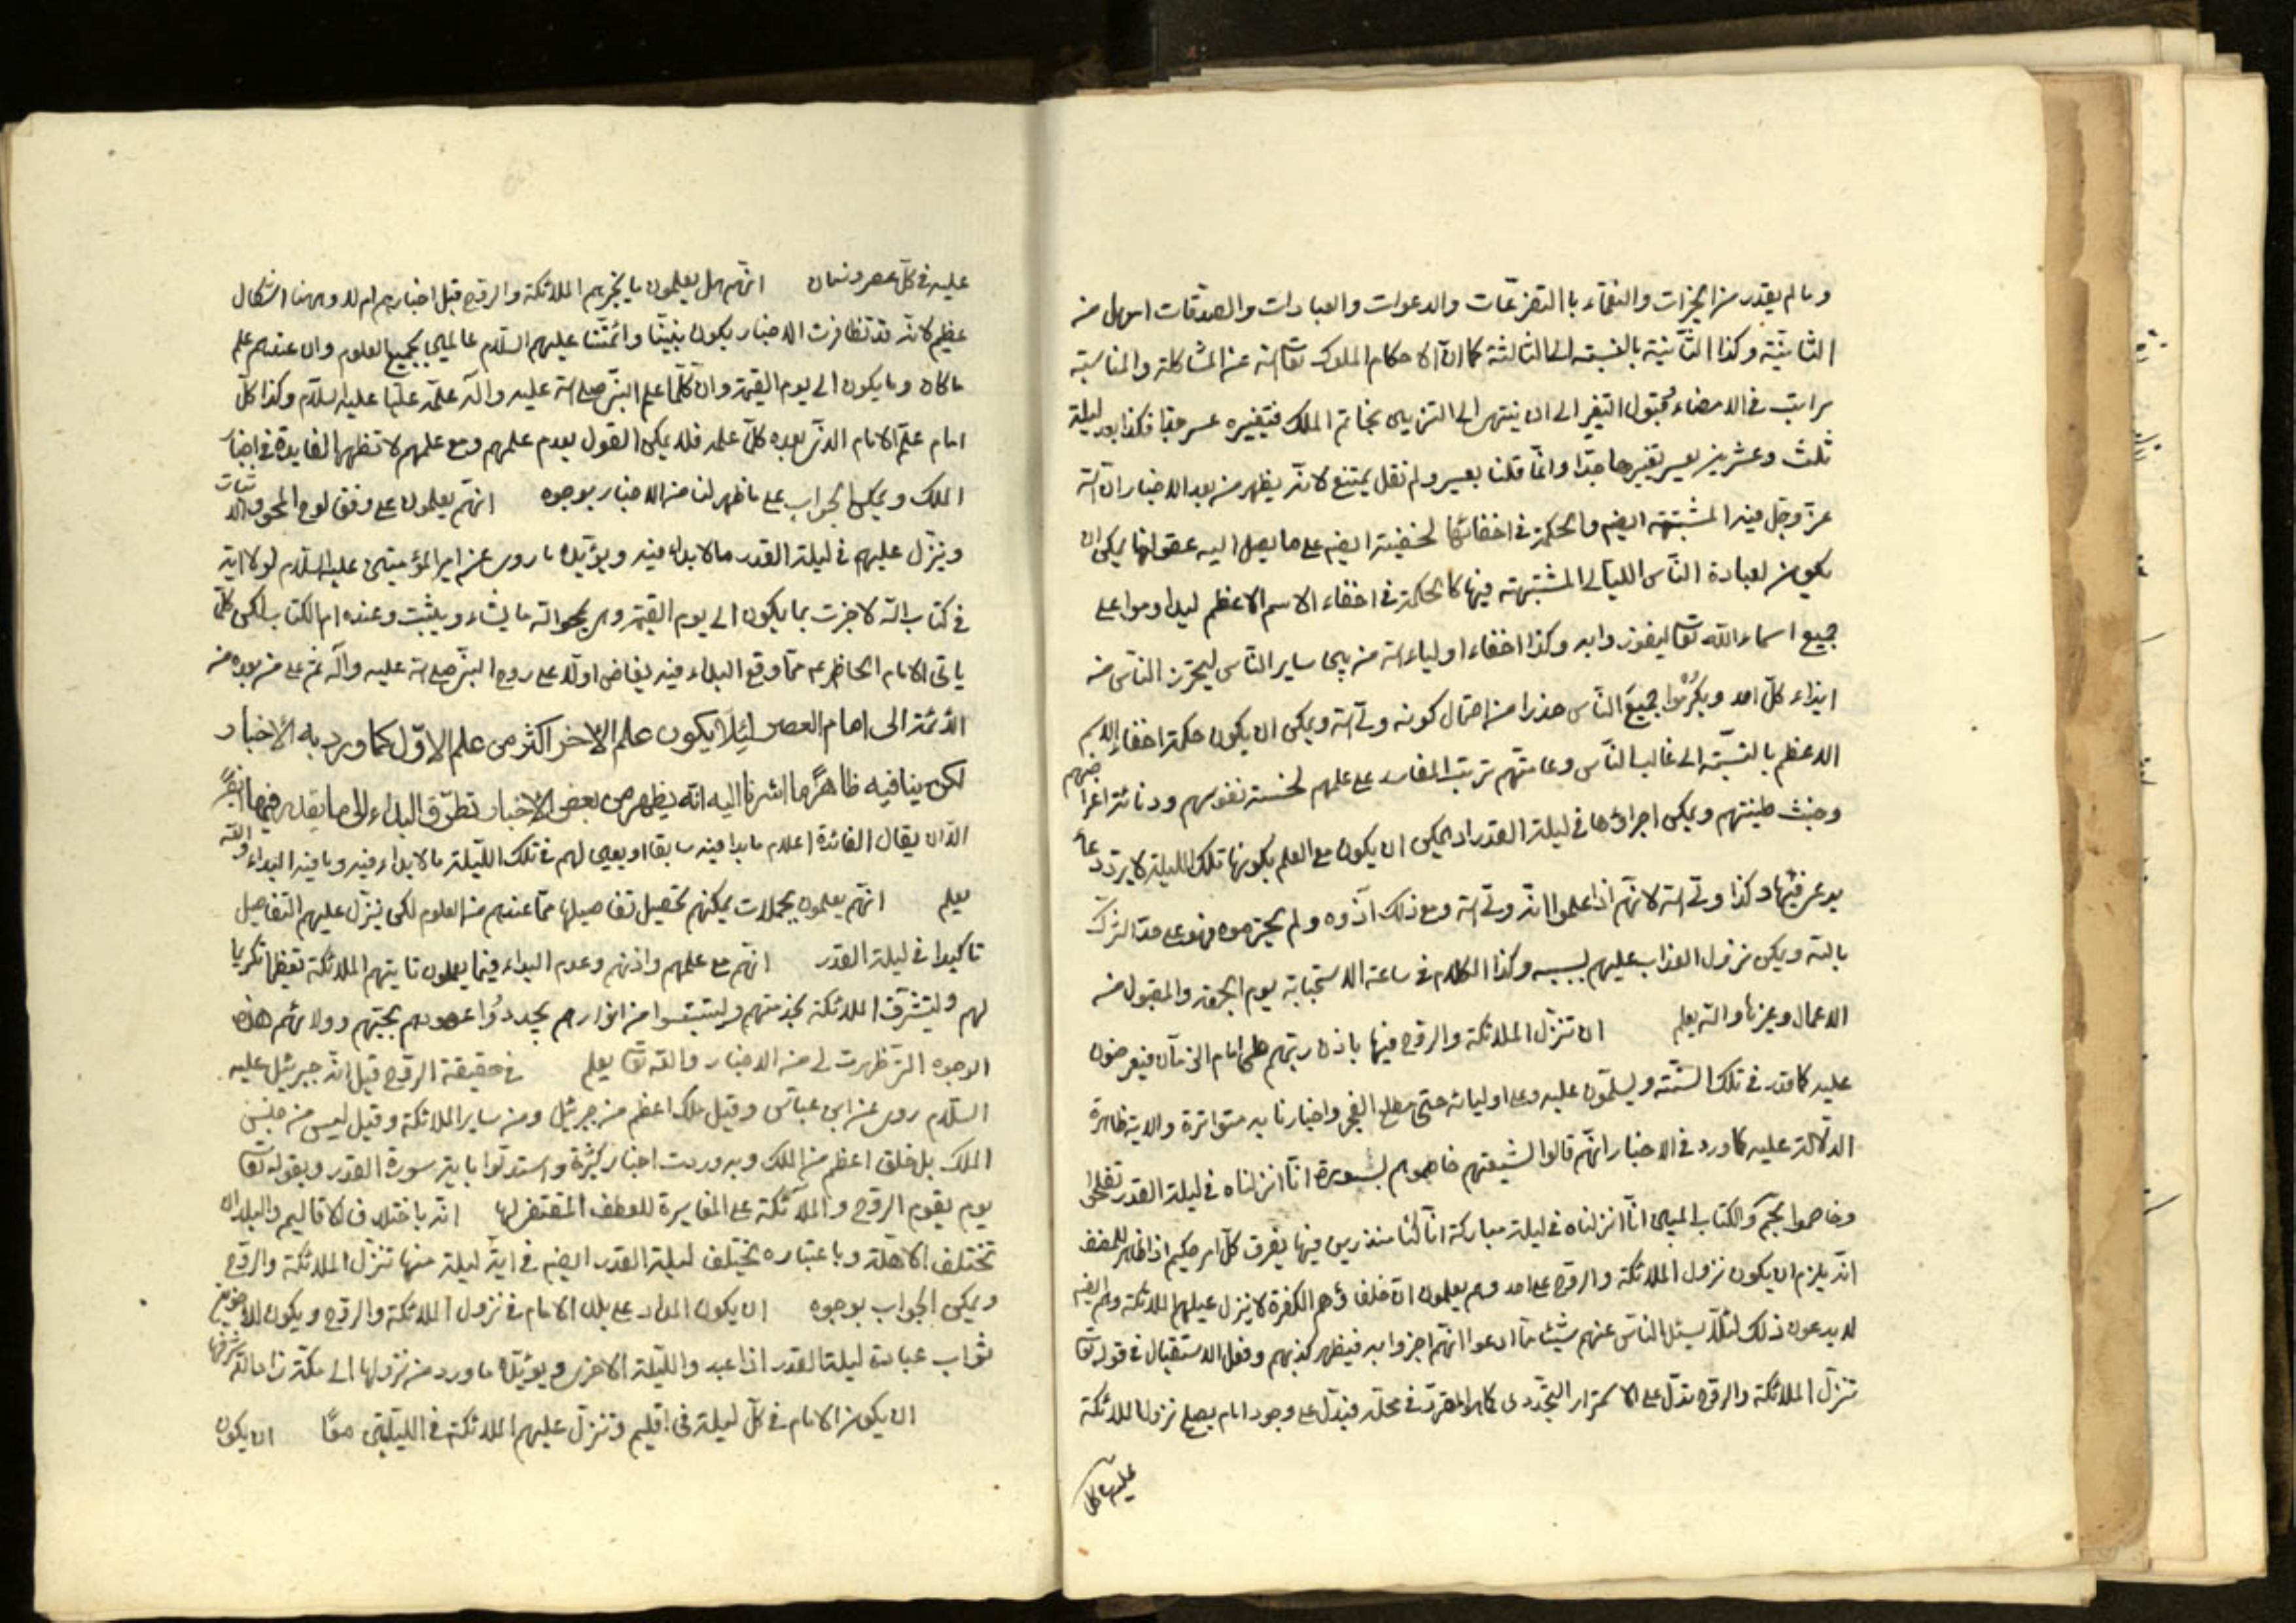 وما لم يقدر من الخيرات والنقماء باالتضرعات والدعوات والعبادات والصدقات اسهل من
الثانية وكذا الثانية بالنسبة الى الثالثة كما ان لاحكام الملوك تعالى الله عن المشاكلة والمناسبة
مراتب في الامضاء وقبول التغير الى ان ينتهى الى التزيين بخاتم الملك فتغييره عسر جدا فكذا بعد ليلة
ثلث وعشرين يعسر تغييرها جدا وانما قلنا يعسر ولم نقل يمتنع لانه يظهر من بعد الاخبار ان الله
عز وجل فيه المشية ايضم والحكمة في اخفائها لخفية ايضم على ما يصل اليه عقولنا يمكن ان
يكون لعبادة الناس الليالى المشتبهة فيها كالحكمة في اخفاء الاسم الاعظم ليداوموا على
جميع اسماء الله تعالى ليفوزوا به وكذا اخفاء اولياء الله من بين ساير الناس ليحترز الناس من
ايذاء كل احد ويكرموا جميع الناس حذرا من احتمال كونه ولى الله ويمكن ان يكون حكمة اخفاء الاسم
الاعظم بالنسبة الى غالب الناس وعامتهم ترتب المفاسد على علمهم لخسة نفوسهم ودنائة اغراضهم
وخبث طينتهم ويمكن اجراؤها في ليلة القدر اد يمكن ان يكون مع العلم بكونها تلك الليلة لا يرتد دعاء
يدعى فيها وكذا ولى الله لانهم اذا علموا انه ولى الله ومع ذلك آذوه ولم يحترموه فهو على حد الشرك
بالله ويمكن نزول العذاب عليهم بسببه وكذا الكلام في ساعة الاستجابة يوم الجمعة والمقبول من
الاعمال وغيرها والله يعلم ان تنزل الملائكة والروح فيها باذن ربهم على امام الزمان فيعرضون
عليه ما قدر في تلك السنة ويسلمون عليه وعلى اوليائه حتى مطلع الفجر واخبارنا به متواترة والاية ظاهرة
الدلالة عليه كما ورد في الاخبار انهم قالوا لشيعتهم خاصموهم بسورة انا انزلناه في ليلة القدر تفلحوا
وخاصموا بحم والكتاب المبين انا انزلناه في ليلة مباركة انا كنا منذرين فيها يفرق كل امر حكيم اذ اظهر للمنصف
انه يلزم ان يكون نزول الملائكة والروح على احد وهم يعلمون ان خلفاؤهم الكفرة لا ينزل عليهم الملائكة وهم ايضم
لا يدعون ذلك لئلا يسئل الناس عنهم شيئا مما ادعوا انهم اخبروا به فيظهر كذبهم وفعل الاستقبال في قوله تعالى
تنزل الملائكة والروح تدل على الاستمرار التجددى كما هو المقرر في محله فيدل على وجود امام يصلح نزول الملائكة
عليه في كل
عليه في كل عصر وزمان انهم هل يعلمون ما يخبرهم الملائكة والروح قبل اخبارهم ام لا وههنا اشكال
عظيم لانه قد تظافرت الاخبار بكون نبينا وائمتنا عليهم السلام عالمين بجميع العلوم وان عندهم علم
ما كان وما يكون الى يوم القيمة وان كلما علم النبى صلى الله عليه واله علمه عليا عليه السلام وكذا كل
امام علم الامام الذى بعده كل علمه فلا يمكن القول بعدم علمهم ومع علمهم لا تظهر الفايدة في اخبار
الملك ويمكن الجواب على ما ظهر لنا من الاخبار بوجوه انهم يعلمون على وفق لوح المحو والاثبات
وينزل عليهم في ليلة القدر ما لا بداء فيه ويؤيده ما روى عن امير المؤمنين عليه السلام لولا اية
في كتاب الله لاخبرت بما يكون الى يوم القيمة وهى يمحوا الله ما يشاء ويثبت وعنده ام الكتاب لكن كل
ياتى الامام الحاضر عم مما وقع البداء فيه يفاض اولا على روح النبى صلى الله عليه وآله ثم على من بعده من
الائمة الى امام العصر لئلا يكون علم الاخر اكثر من علم الاول كما ورد به الاخبار
لكن ينافيه ظاهرا ما اشرنا اليه انه يظهر من بعض الاخبار تطرق البداء الى ما يقدر فيها ايضًا
الا ان يقال الفائدة اعلام ما بدا فيه سابقا او يعين لهم في تلك الليلة ما لا بداء فيه وما فيه البداء والله
يعلم انهم يعلمون مجملات يمكنهم تحصيل تفاصيلها مما عندهم من العلوم لكن ينزل عليهم التفاصيل
تاكيدا في ليلة القدر انهم مع علمهم واذنهم وعدم البداء فيما يعلمون تايتهم الملائكة تعظيما تكريما
لهم وليتشرف الملائكة بخدمتهم وليقتبسوا من انوارهم يجددوا عهودهم بحبهم وولائهم هذه
الوجوه التى ظهرت لى من الاخبار والله تعالى يعلم في حقيقة الروح قيل انه جبرئيل عليه
السلام روى عن ابن عباس وقيل ملك اعظم من جبرئيل ومن ساير الملائكة وقيل ليس من جنس
الملك بل خلق اعظم من الملك وبه وردت اخبار كثيرة واستدلوا باية سورة القدر وبقوله تعالى
يوم يقوم الروح والملآئكة على المغايرة للعطف المقتضى لها انه باختلاف الاقاليم والبلدان
تختلف الاهلة وباعتباره يختلف ليلة القدر ايضم في اية ليلة منها تنزل الملائكة والروح
ويمكن الجواب بوجوه ان يكون المدار على بلد الامام في نزول الملائكة والروح ويكون للاخرين
ثواب عبادة ليلة القدر اذا عبد والليلة الاخرى ويؤيده ما ورد من نزولها الى مكة زادها الله شرفها
ان يكون الامام في كل ليلة في اقليم وتنزل عليهم الملائكة في الليلتين معًا ان يكون